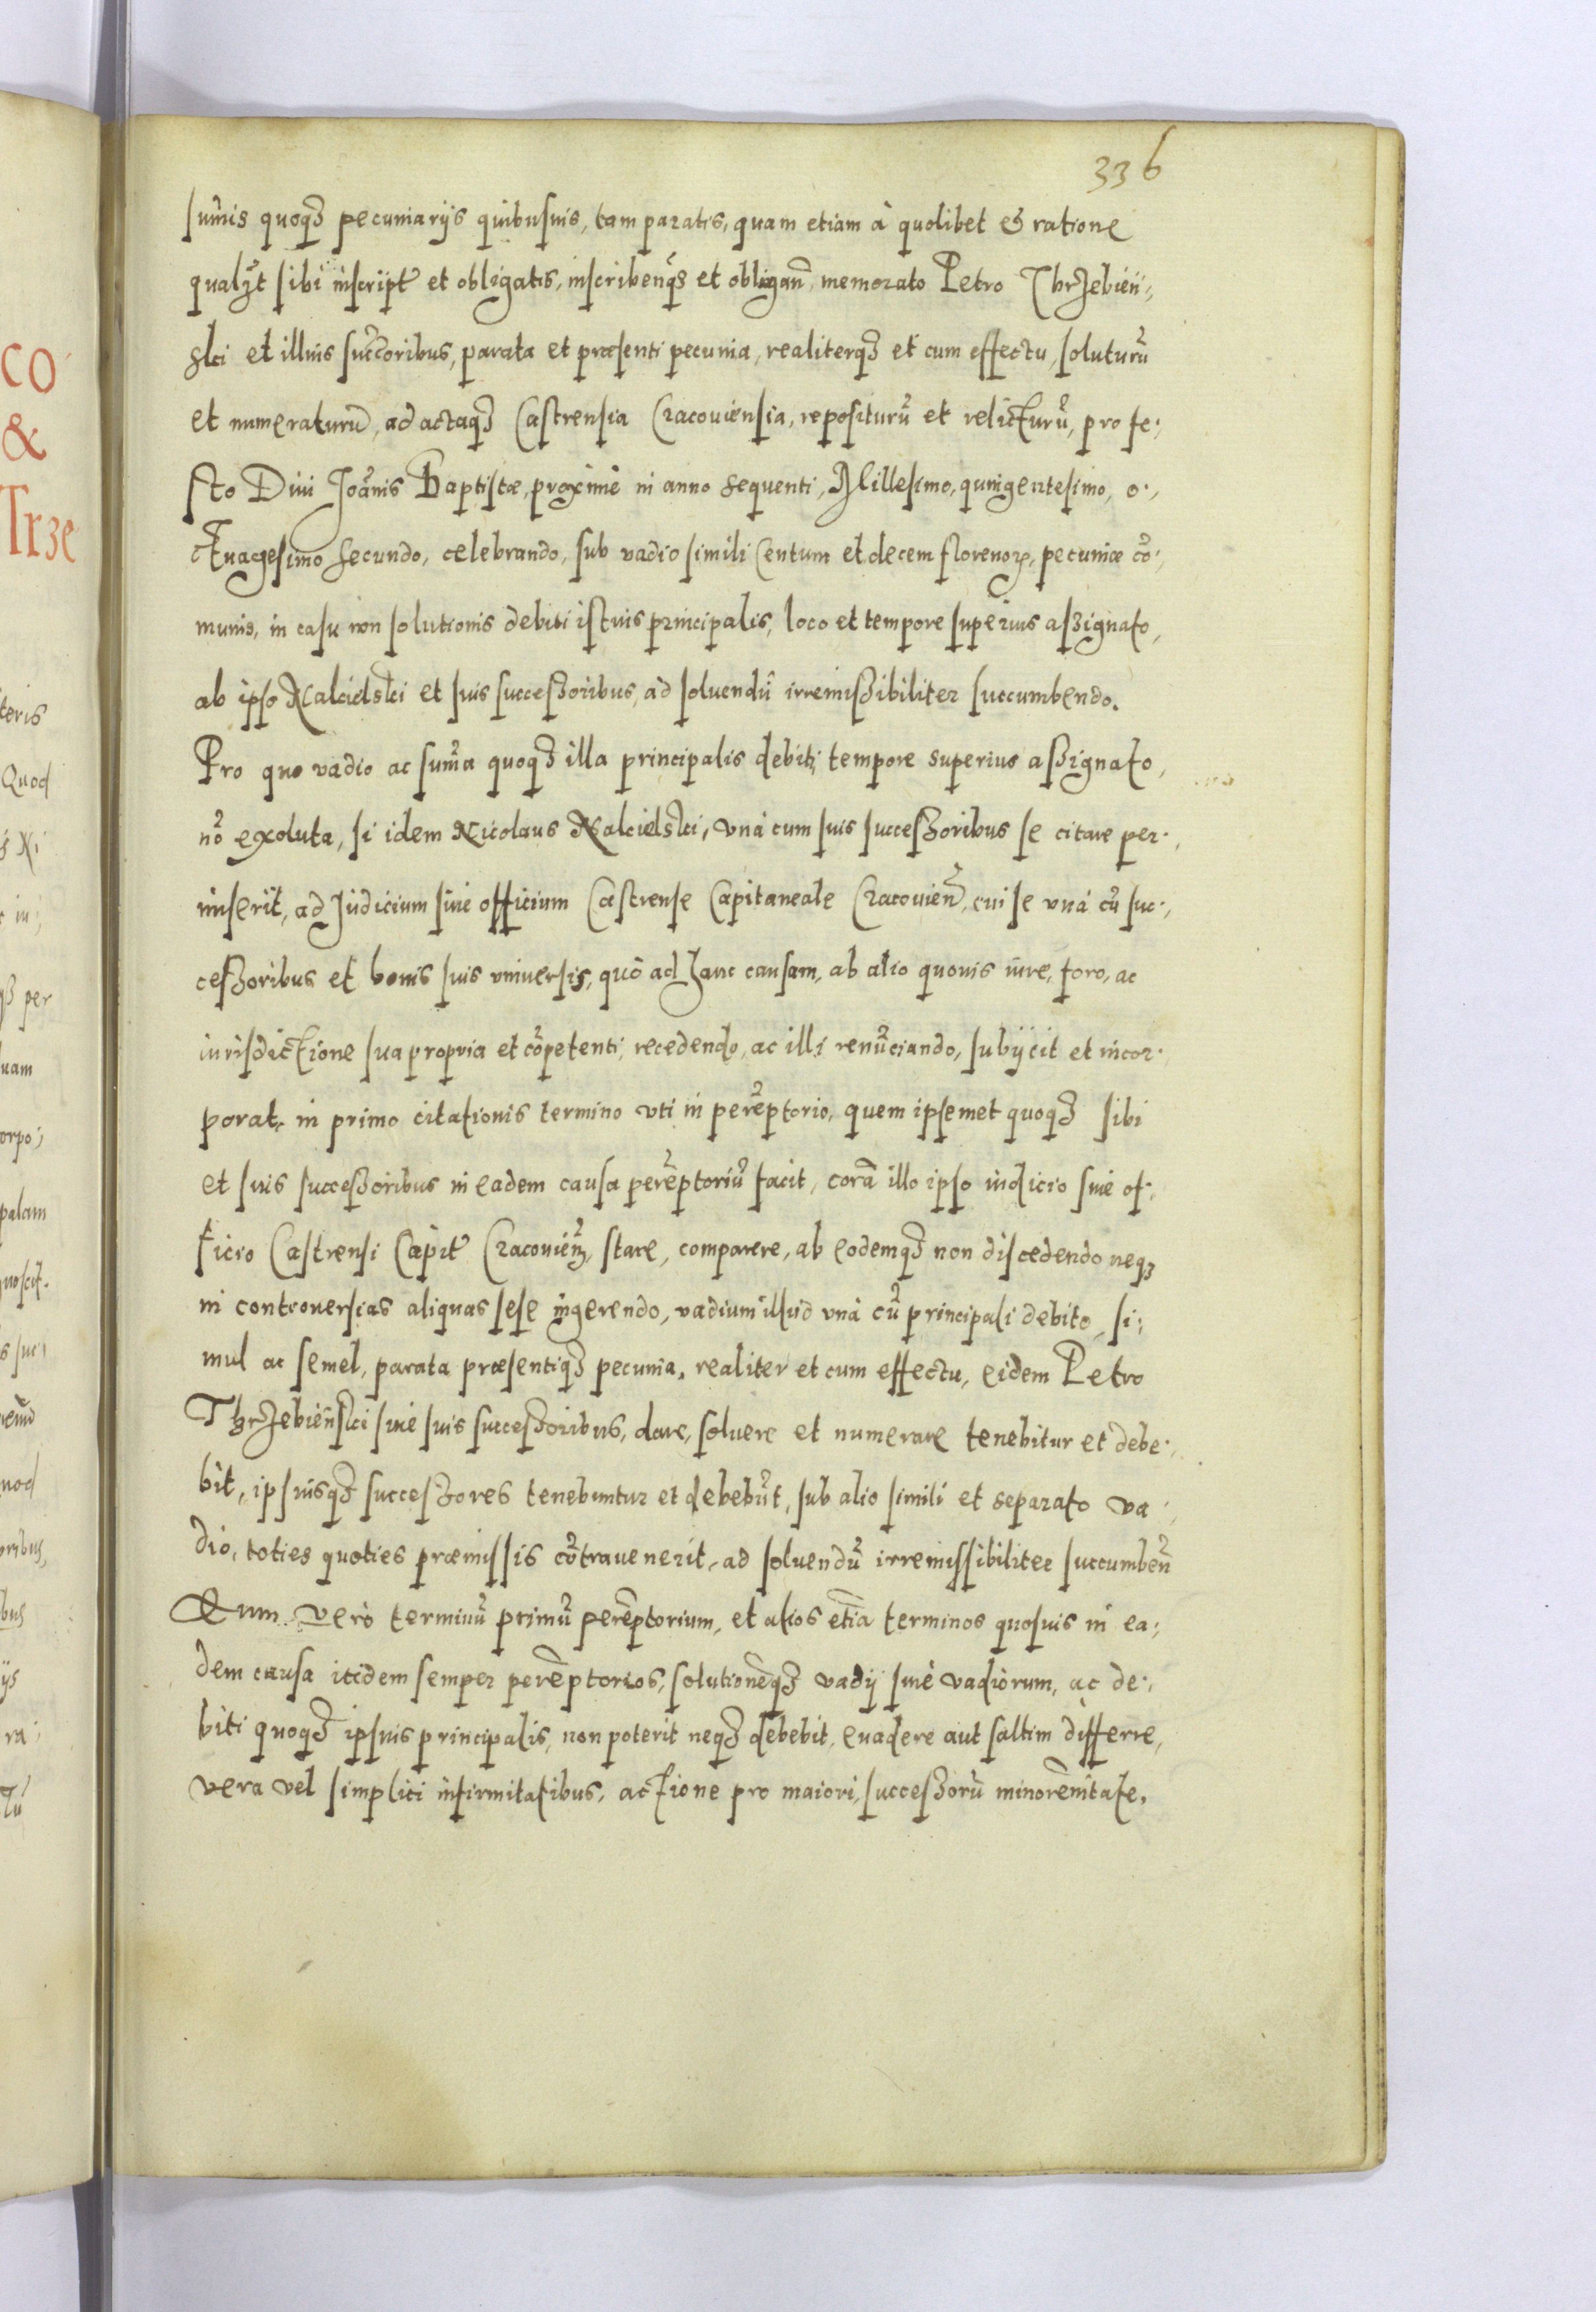 336
sum̃is quoqꝫ pecuniarijs quibusuis, tam paratis, quam etiam à quolibet et ratione
qualꝫt sibi inscript̃ et obligatis, inscribenq́s et obligañ, memorato Petro Thrzebień:
ski et illius suc̃coribus, parata et præsenti pecunia, realiterqꝫ et cum effectu, soluturũ
et numeraturũ, ad actaqꝫ Castrensia Cracouiensia, repositurũ et relicturũ, pro fe:
sto Diui Joãnis Baptistæ, proximè in anno sequenti, Millesimo, quingentesimo, o:
ctuagesimo secundo, celebrando, sub vadio simili Centum et decem florenoꝝ, pecuniæ cõ:
munis, in casu non solutionis debiti istuis principalis, loco et tempore superius assignato,
ab ipso Nalcielski et suis successoribus, ad soluendũ irremissibiliter succumbendo.
Pro quo vadio ac sum̃a quoqꝫ illa principalis debiti tempore superius assignato,
nõ exoluta, si idem Nicolaus Nalcielski, vnà cum suis successoribus se citare per:
miserit, ad Judicium siue officium Castrense Capitaneale Cracouieñ, cui se vnà cũ suc:
cessoribus et bonis suis vniuersis, quò ad hanc causam, ab alio quouis iure, foro, ac
iurisdictione sua propria et cõpetenti, recedendo, ac illi renũciando, subijcit et incor:
porat, in primo citationis termino vti in perẽptorio, quem ipsemet quoqꝫ sibi
et suis successoribus in eadem causa perẽptoriũ facit, corã illo ipso iudicio siue of:
ficio Castrensi Capit̃ Cracouieñ, stare, comparere, ab eodemqꝫ non discedendo neqꝫ
in controuersias aliquas sese ingerendo, vadium illud vnà cũ principali debito, si:
mul ac semel, parata præsentiqꝫ pecunia, realiter et cum effectu, eidem Petro
Thrzebieński siue suis successoribus, dare, soluere et numerare tenebitur et debe:
bit, ipsiusqꝫ successores tenebuntur et debebũt, sub alio simili et separato va:
dio, toties quoties præmissis cõtrauenerit, ad soluendũ irremissibiliter succumbeñ
Quum verò terminũ primũ perẽptorium, et alios etiã terminos quosuis in ea:
dem causa itidem semper perẽptorios, solutionẽqꝫ vadij siuè vadiorum, ac de:
biti quoqꝫ ipsuis principalis, non poterit neqꝫ debebit, euadere aut saltim differre,
vera vel simplici infirmitatibus, actione pro maiori, successorũ minorẽnitate,